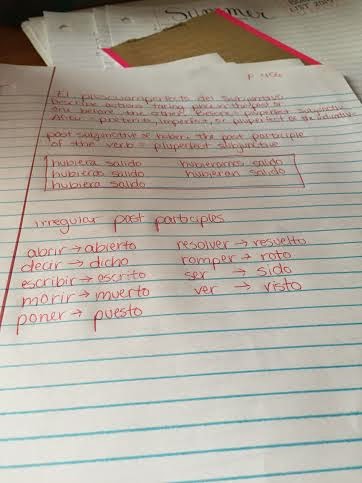 Summer
P 456
El pluscuamperfecto del subjuntivo
describe actions taking place in the past or
one before the other. Before: pluperfect subjunctive
After: preterite, imperfect, or pluperfect of the indicative
past subjunctive of haber. The past participle
of the verb = pluperfect subjunctive
hubiera salido hubieramos salido
hubieras salido hubieran salido
hubiera salido
irregular past participles
abrir → abierto resolver → resuelto
decir → dicho romper → roto
escribir → escrito ser → sido
morir → muerto ver → visto
poner → puesto